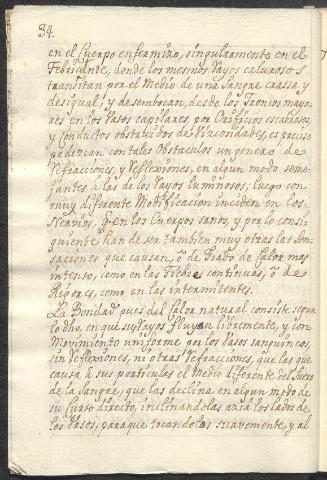 34.
en el Cuerpo enfermizo, singularmente en el
Febricitante, donde los mesmos Rayos calurosos
transitan por el Medio de una Sangre crassa, y
desigual, y desembocan, desde los Troncos mayo
res en los Vasos capilares, por Orificios escabrosos,
y Conductos obstruidos de Viscosidades, es preciso
padezcan con tales Obstaculos un genero de
Refracciones, y Reflexiones, en algun modo seme
jantes à las de los Rayos luminosos; luego con
muy diferente Modificacion inciden en los
Nervios, q̃ en los Cuerpos sanos, y por lo consi
guiente han de ser tambien muy otras las Sen
saciones que causan, ò de Grado de Calor mas
intento, como en las Fiebres continuas, ò de
Rigores, como en las intermitentes.
La Bondad pues del Calor natural consiste segun
lo dho, en que sus Rayos fluyan libremente, y con
Movimiento uniforme por los Vasos sanguineos
sin Reflexiones, ni otras Refracciones, que las que
causa à sus particulas el Medio diferente del Suero
de la Sangre, que las declina en algun modo de
su Curso directo, inclinandolas azia los lados de
los Vasos, paraque tocandolos suavemente, y al